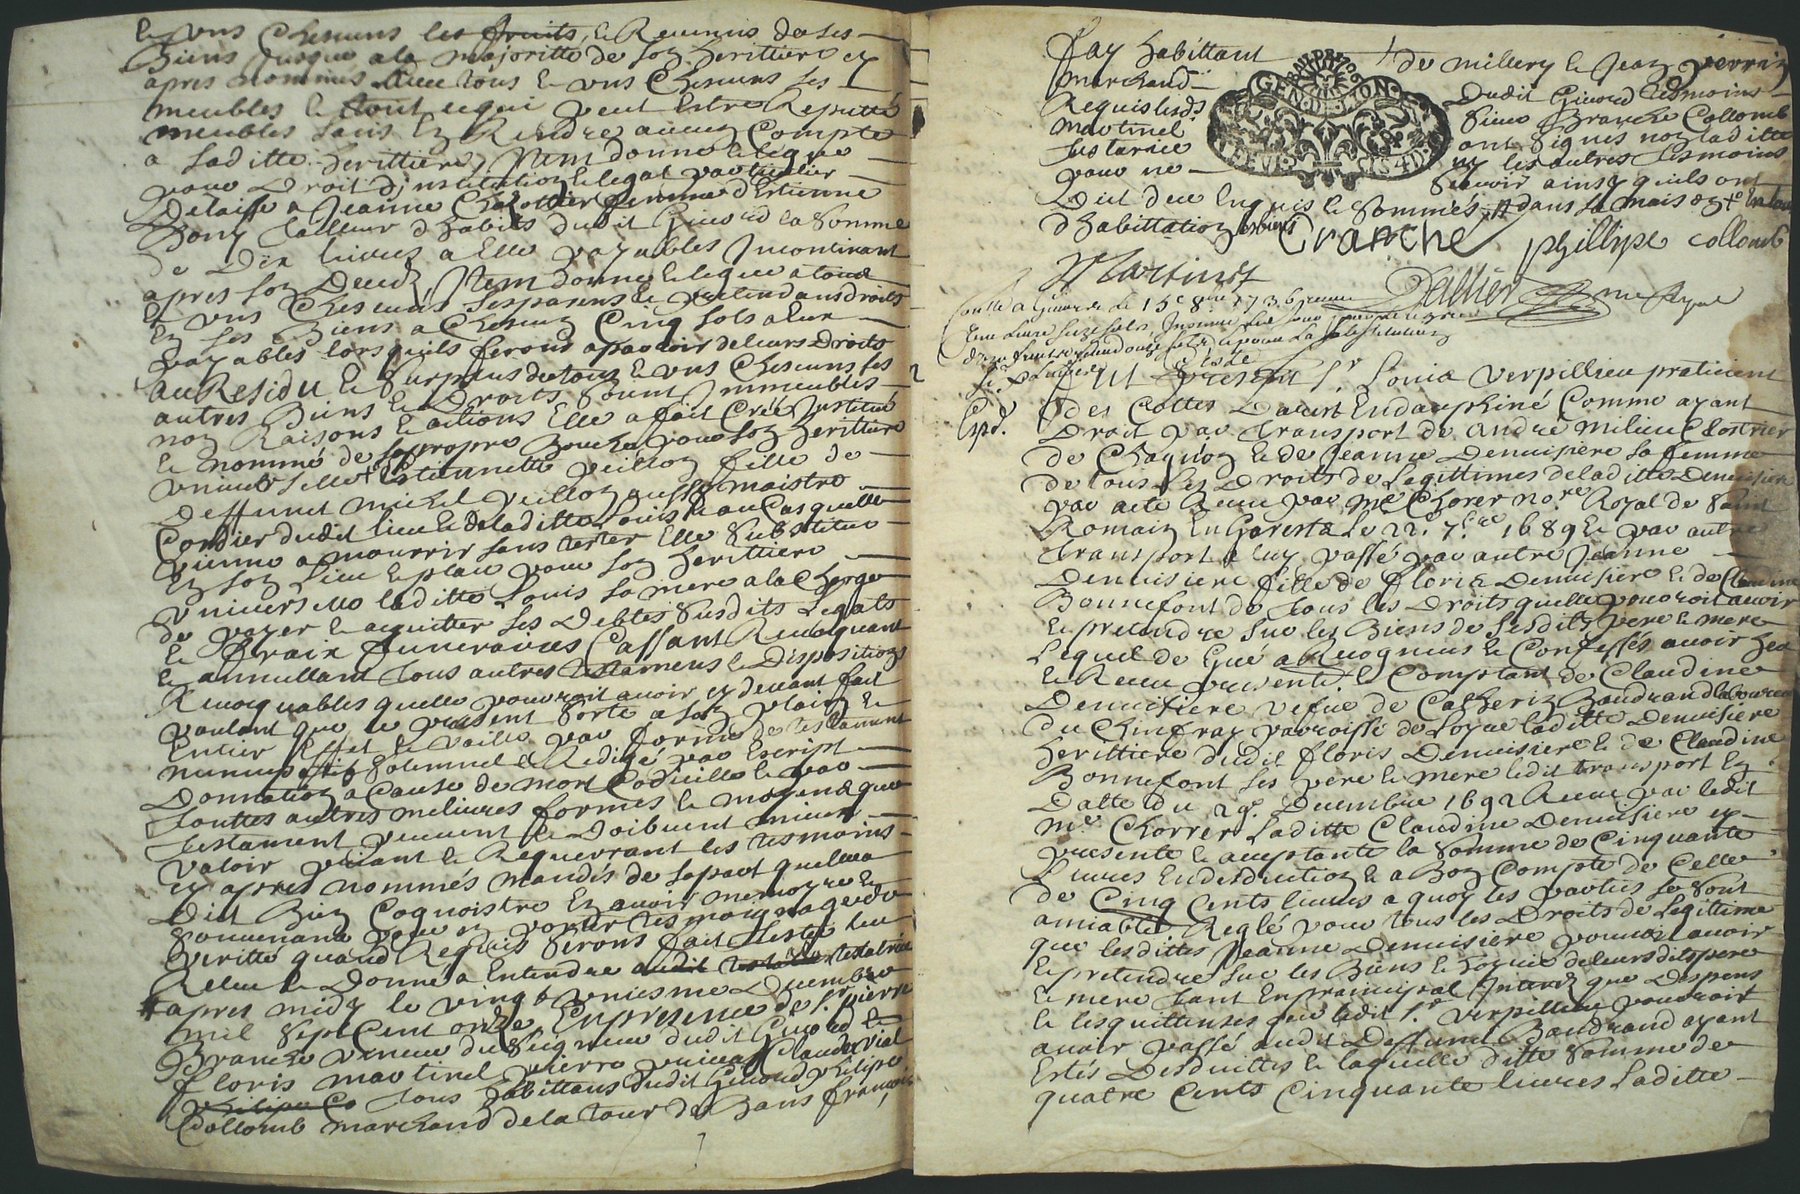 et uns Chescuns les fruits et Revenus de ses
Biens jusque a la majoritté de son herittiere et
apres nommée Avec tous et uns Chescuns ses
meubles et tout ce qui peut Estre Reputté
meubles sans En Rendre aucun Compte
a Saditte herittiere, Item donne et legue
pour Droit d'institution et legat particulier
delaisse a Jeanne femme d'Estienne
tailleur d'habits dudit Givord la Somme
de Dix livres a Elle payables Incontinant
apres son Deceds, Item donne et legue a tous
et uns Chescuns ses parens et pretendans droits
En ses Biens a Chescun Cinq sols a Eux
payables lorsquils feront apparoir de leurs Droits
au Residu et Surplus de tous et uns Chescuns ses
autres Biens et Droits, Immeubles
noms Raisons et actions Elle a fait Créé Institué
et nommé de sa propre Bouche pour son herittiere
universelle Estiennette Veillon fille de
deffunct Michel Veillon maistre
Cordier dudit lieu et de laditte Louis et au Cas quelle
vienne a mourrir sans tester Elle Substitue
En son Lieu et place pour son herittiere
universelle laditte Louis sa mere a la Charge
de payer et acquitter ses debtes Susdits Legats
et fraix funeraires Cassant Revocquant
et annullant tous autres testamens et Dispositions
Revocquables quelle pourroit avoir cy devant fait
voulant que le present Sorte a son plain et
Entier Effet et vaille par forme de testament
nuncupatif Solemnel et Redigé par Escript
Donnation a Cause de mort Codicille et par
touttes autres melieures formes et moyens que
testament peuvent et Doibvent mieux
valoir priant et Requerrant les tesmoins
cy apres nommés mandés de sa part quelle a
Dit Bien Cognoistre En avoir memoyre et
Souvenance pour en porter tesmoignage de
veritté quand Requis Seront fait
Releu et Donné a Entendre audit testateur testatrice
apres midy le vingt uniesme Decembre
mil Sept Cent onze En presence de Sr pierre
Branche du Seigneur dudit Givord Sr
floris martinel pierre Claude Vial
philipe Co tous habittans dudit Givord philipe
Collomb marchand de la tour de Sans françois
fay habittant de millery et Jean perrin
marchand dudit Givord tesmoins
Requis lesds Sieur Branche Collomb
martinel ont Signés non laditte
testatrice ny les autres tesmoins
pour ne Sçavoir ainsy quils ont
Dit de ce Enquis et Sommés, dans la maison
d'habittation
Branche phillipe collomb
Martinel
Dallier nre Royal
GEN. DE LYON
Controllé a Givord le 15e 8bre 1736
Expd.
Fut present Sr Louis Verpillieu praticient
des Cottes Darest En dauphiné Comme ayant
Droit par transport de andré milieu
de Chagnon et de Jeanne Denuisiere sa femme
de tous Les Droits de Legittimes de laditte Denuisiere
par acte Receu par Me Chorer nore Royal de Saint
Romain En Jarest Le 22e 7bre 1689 Et par autre
transport a luy passé par autre Jeanne
Denuisiere fille de floris Denuisiere et de Claudine
Bonnefont de tous les Droits quelle pourroit avoir
Et pretendre Sur les Biens de Sesdits pere et mere
Lequel de Gré a Recognus et Confessé avoir heu
et Receu presente. et Comptant de Claudine
Denuisiere vefve de Catherin Baudrand laboureur
du Chinfray parroisse de Loyre laditte Denuisiere
herittiere dudit floris Denuisiere et de Claudine
Bonnefont ses pere et mere ledit transport En
Datte du 29e Decembre 1692 Receu par ledit
Me Chorrer Laditte Claudine Denuisiere cy
presente et acceptante la Somme de Cinquante
Livres En deduction et a Bon Compte de Celle
de Cinq Cents livres a quoy les parties se Sont
amiables Reglé pour tous les Droits de Legittime
que lesdittes Jeanne Denuisiere pouvoit avoir
Et pretendre Sur les Biens et hoyrie de leursdits pere
et mere tant En principal Interest que Despens
et les quittenses que ledit Sr Verpillieu pourroit
avoir passé audit Deffunct Baudrand ayant
Estés Desduittes et laquelle ditte Somme de
quatre Cents Cinquante livres Laditte